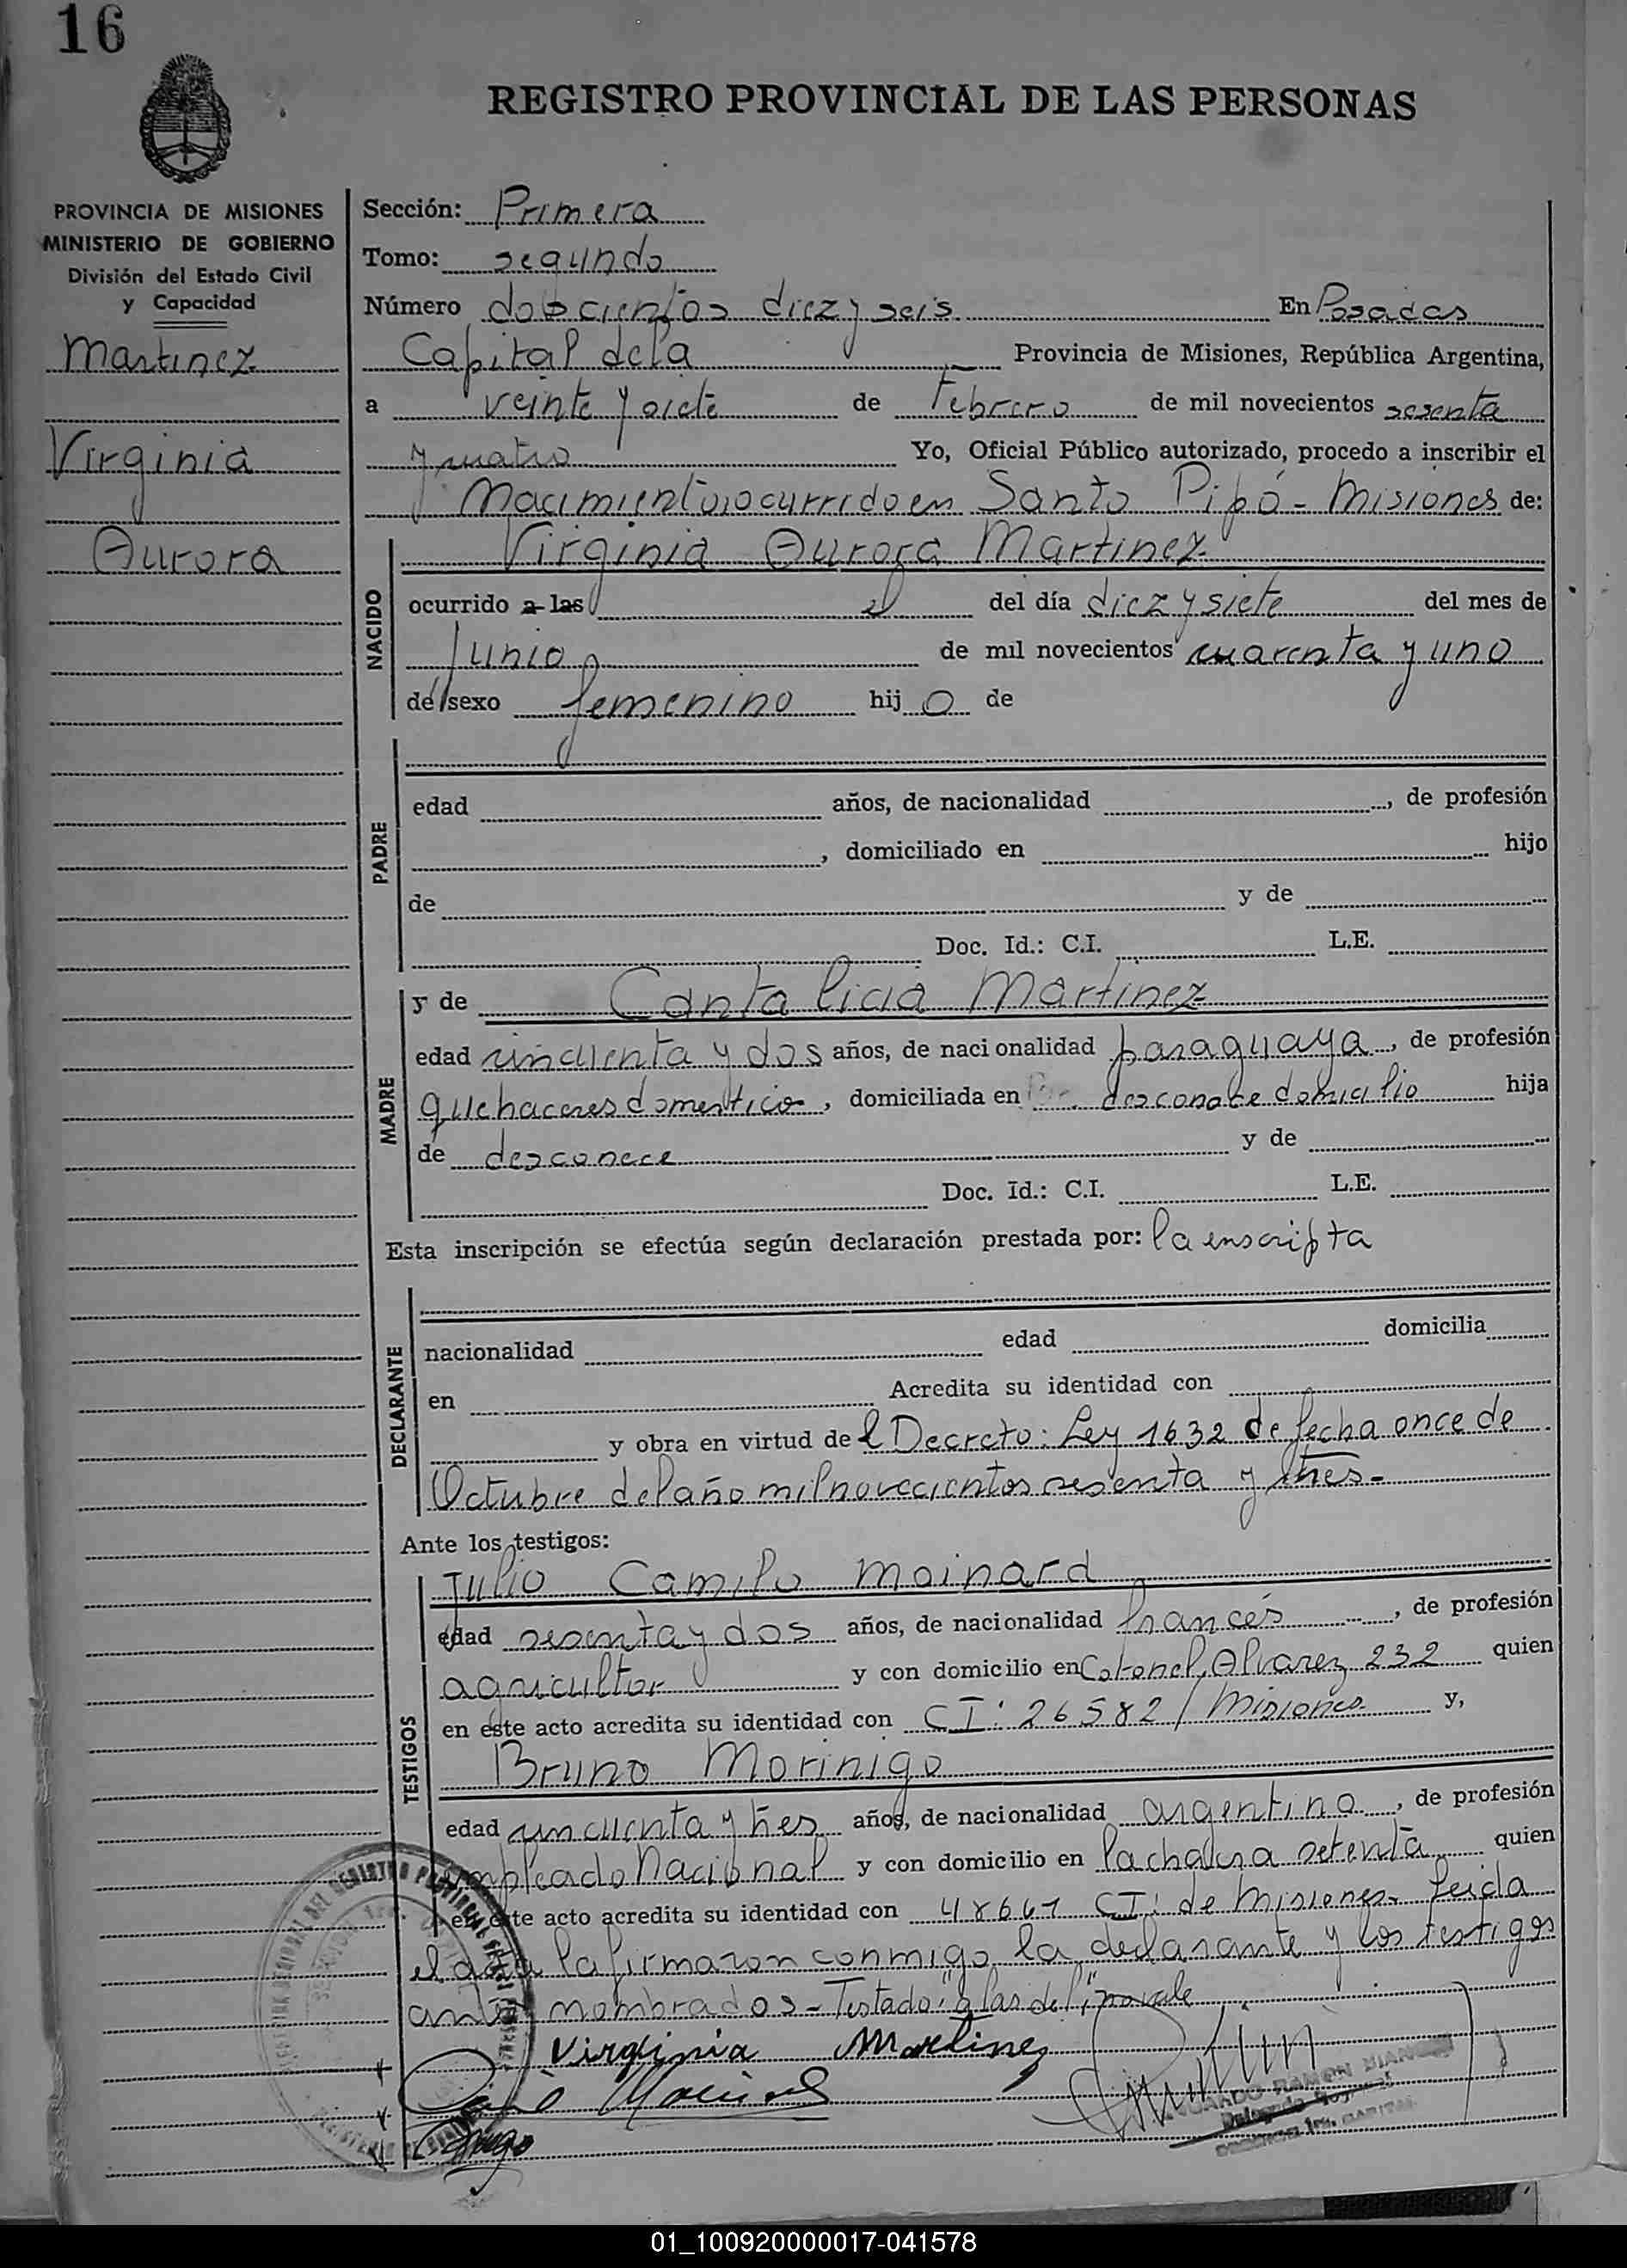 16
REGISTRO PROVINCIAL DE LAS PERSONAS
PROVINCIA DE MISIONES
MINISTERIO DE GOBIERNO
División del Estado Civil
y Capacidad
Martinez
Virginia
Aurora
Sección: Primera
Tomo: segundo
Número doscientos diez y seis En Posadas
Capital de la Provincia de Misiones, República Argentina,
a veinte y siete de Febrero de mil novecientos sesenta
y cuatro Yo, Oficial Público autorizado, procedo a inscribir el
Nacimiento ocurrido en Santo Pipó - Misiones de:
NACIDO
Virginia Aurora Martinez
ocurrido a las el del día diez y siete del mes de
Junio de mil novecientos cuarenta y uno
de sexo femenino hij o de
PADRE
edad años, de nacionalidad , de profesión
, domiciliado en hijo
de y de
Doc. Id.: C.I. L.E.
MADRE
y de Cantalicia Martinez
edad cincuenta y dos años, de nacionalidad paraguaya , de profesión
quehaceres domestico , domiciliada en desconoce domicilio hija
de desconece y de
Doc. Id.: C.I. L.E.
Esta inscripción se efectúa según declaración prestada por: la inscripta
DECLARANTE
nacionalidad edad domicilia
en Acredita su identidad con
y obra en virtud de l Decreto: Ley 1632 de fecha once de
Octubre del año mil novecientos sesenta y tres -
Ante los testigos:
TESTIGOS
Julio Camilo Moinard
edad sesenta y dos años, de nacionalidad francés , de profesión
agricultor y con domicilio en Coronel Alvarez 232 quien
en este acto acredita su identidad con CI: 26582 / Misiones y,
Bruno Morinigo
edad cincuenta y tres años, de nacionalidad argentino , de profesión
empleado Nacional y con domicilio en la chacra setenta quien
en este acto acredita su identidad con CI: de Misiones. Leida
el acta la firmaron conmigo la declarante y los testigos
antes nombrados - Testado: "a las del", no vale
Virginia Martinez
01_100920000017-041578